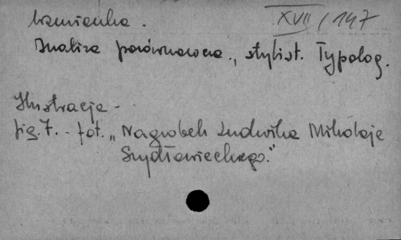 kamienka. XVII/147
Analiza porównawcza., stylist. Typolog.
Ilustracja -
fig. 7. - fot. „Nagrobek Ludwika Mikołaja
Szydłowieckiego."